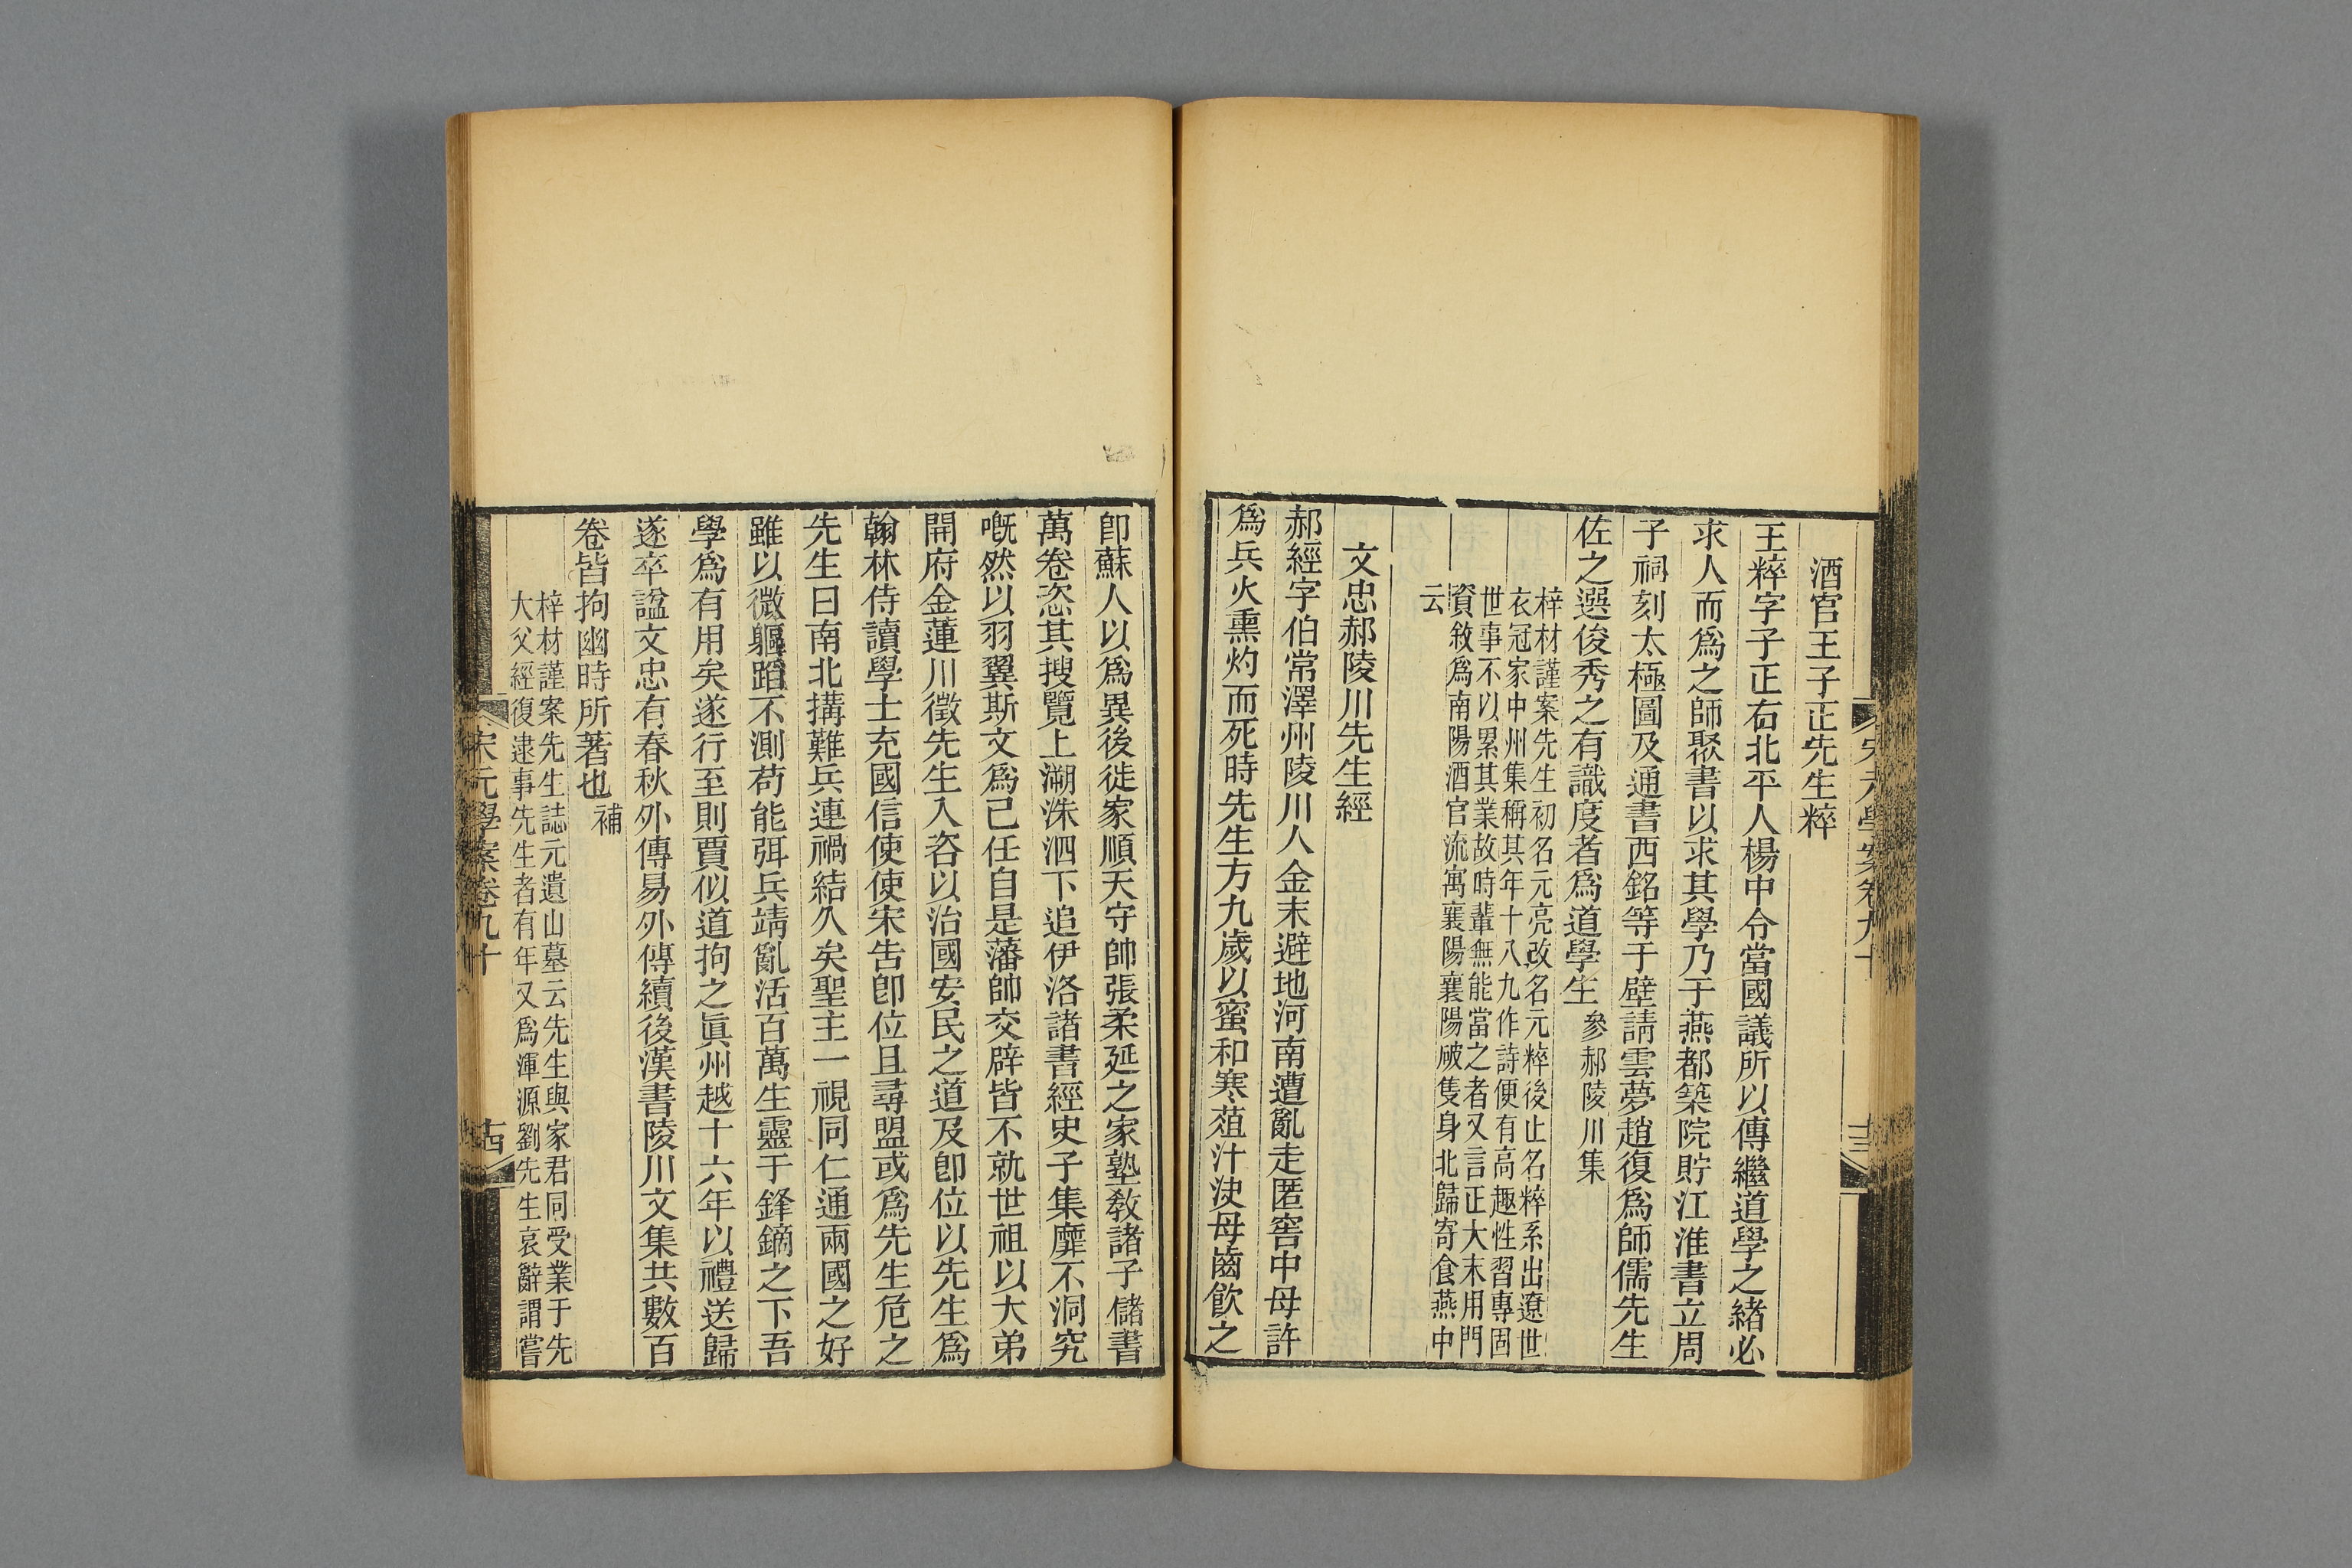 酒官王子正先生粹
王粹字子正右北平人楊中令當國議所以傳繼道學之緒必
求人而爲之師聚書以求其學乃于燕都築院貯江淮書立周
子祠刻太極圖及通書西銘等于壁請雲夢趙復爲師儒先生
佐之選俊秀之有識度者爲道學生參郝陵川集
梓材謹案先生初名元亮改名元粹後止名粹系出遼世
衣冠家中州集稱其年十八九作詩便有高趣性習專固
世事不以累其業故時輩無能當之者又言正大末用門
資敘爲南陽酒官流寓襄陽襄陽破隻身北歸寄食燕中
云
文忠郝陵川先生經
郝經字伯常澤州陵川人金末避地河南遭亂走匿窖中母許
爲兵火熏灼而死時先生方九歲以蜜和寒葅汁決母齒飲之
宋元學案卷九十
十三
卽蘇人以爲異後徙家順天守帥張柔延之家塾敎諸子儲書
萬卷恣其搜覽上溯洙泗下追伊洛諸書經史子集靡不洞究
嘅然以羽翼斯文爲己任自是藩帥交辟皆不就世祖以大弟
開府金蓮川徵先生入咨以治國安民之道及卽位以先生爲
翰林侍讀學士充國信使使宋告卽位且尋盟或爲先生危之
先生曰南北搆難兵連禍結久矣聖主一視同仁通兩國之好
雖以微軀蹈不測苟能弭兵靖亂活百萬生靈于鋒鏑之下吾
學爲有用矣遂行至則賈似道拘之眞州越十六年以禮送歸
遂卒諡文忠有春秋外傳易外傳續後漢書陵川文集共數百
卷皆拘幽時所著也補
梓材謹案先生誌元遺山墓云先生與家君同受業于先
大父經復逮事先生者有年又爲渾源劉先生哀辭謂嘗
宋元學案卷九十
十四